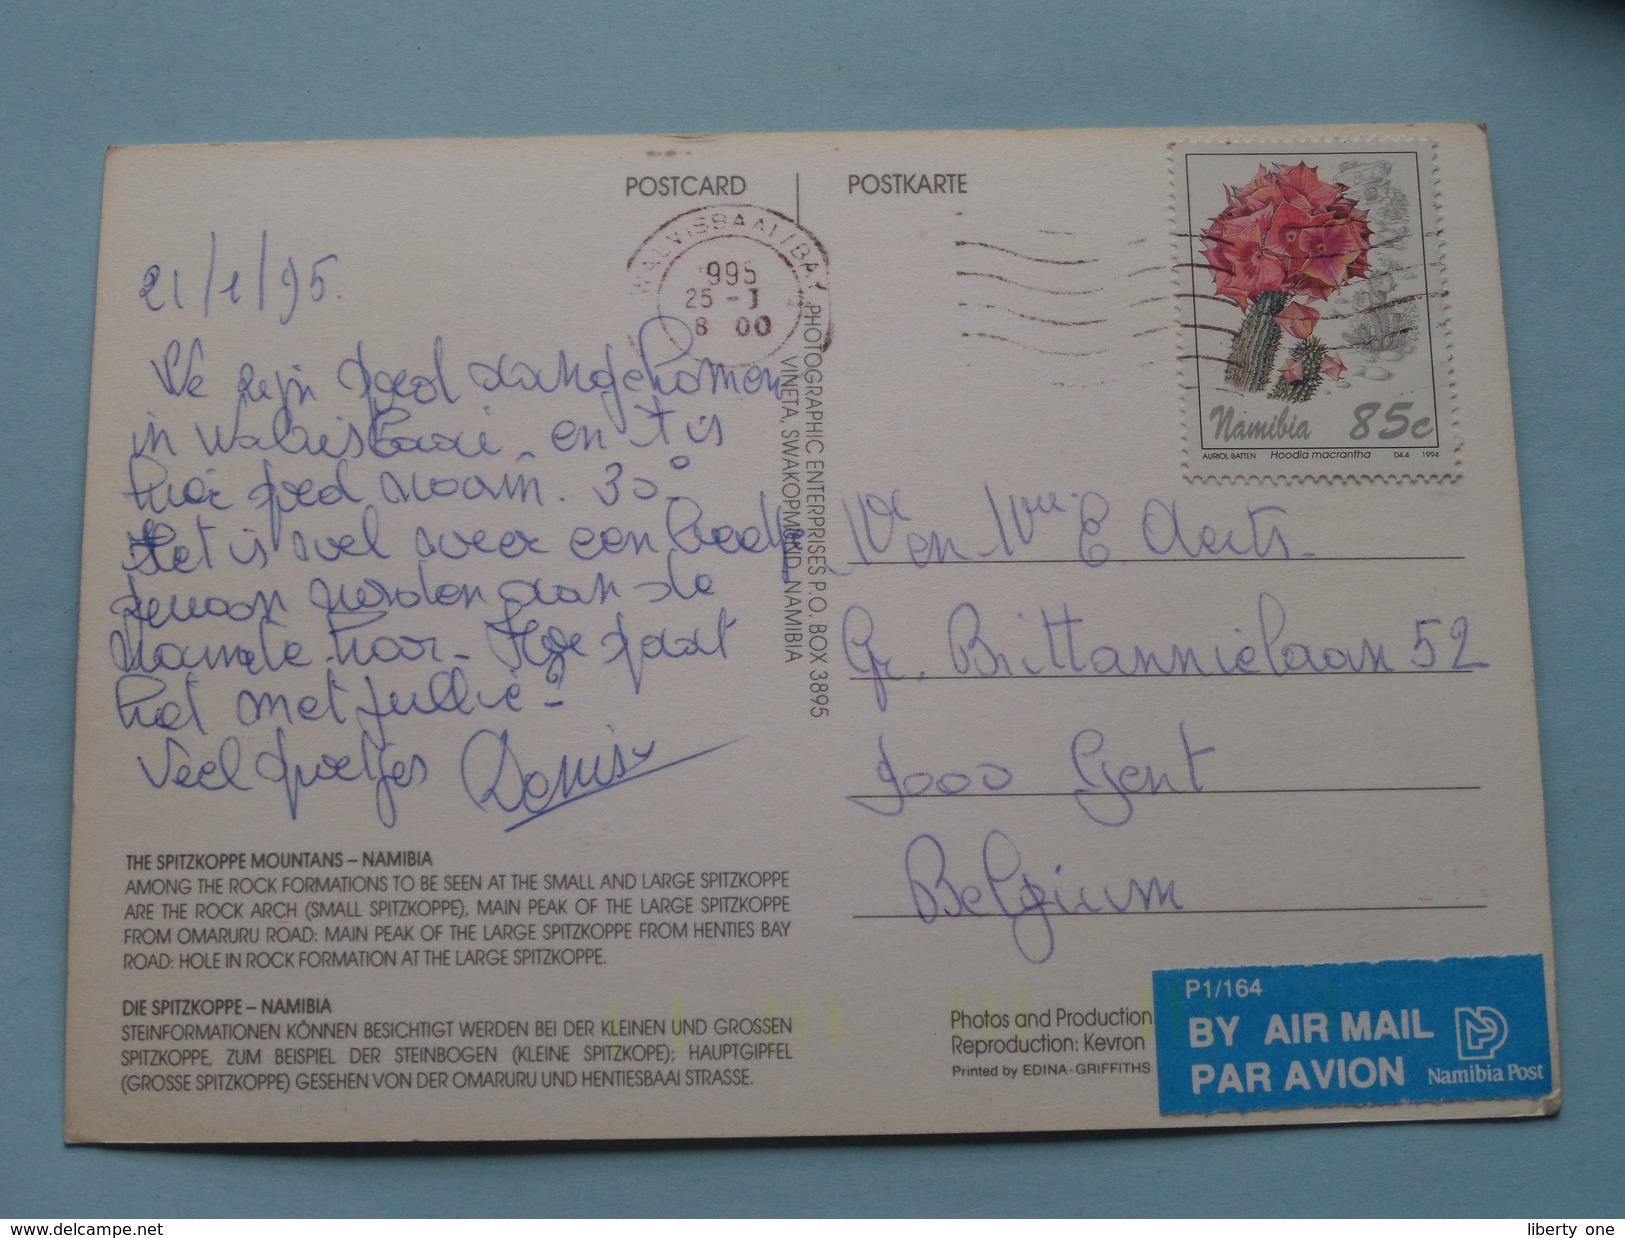 POSTCARD
POSTKARTE
WALVISBAAI/BAY
995
25 -1
8 00
Namibia 85c
AURIOL BATTEN Hoodia macrantha D4.4 1994
21/1/95.
We zijn goed aangekomen
in Walvisbaai en 't is
hier goed warm. 30°
Het is wel weer een beetje
gewoon worden aan de
warmte hoor. Hoe gaat
het met jullie?
Veel groetjes Denis
PHOTOGRAPHIC ENTERPRISES P.O. BOX 3895
VINETA, SWAKOPMUND, NAMIBIA
en E. Aerts.
Gr. Brittannielaan 52
9000 Gent
Belgium
THE SPITZKOPPE MOUNTANS – NAMIBIA
AMONG THE ROCK FORMATIONS TO BE SEEN AT THE SMALL AND LARGE SPITZKOPPE
ARE THE ROCK ARCH (SMALL SPITZKOPPE), MAIN PEAK OF THE LARGE SPITZKOPPE
FROM OMARURU ROAD: MAIN PEAK OF THE LARGE SPITZKOPPE FROM HENTIES BAY
ROAD: HOLE IN ROCK FORMATION AT THE LARGE SPITZKOPPE.
DIE SPITZKOPPE – NAMIBIA
STEINFORMATIONEN KÖNNEN BESICHTIGT WERDEN BEI DER KLEINEN UND GROSSEN
SPITZKOPPE, ZUM BEISPIEL DER STEINBOGEN (KLEINE SPITZKOPE); HAUPTGIPFEL
(GROSSE SPITZKOPPE) GESEHEN VON DER OMARURU UND HENTIESBAAI STRASSE.
Photos and Production
Reproduction: Kevron
Printed by EDINA-GRIFFITHS
P1/164
BY AIR MAIL
PAR AVION
Namibia Post
www.delcampe.net
liberty one